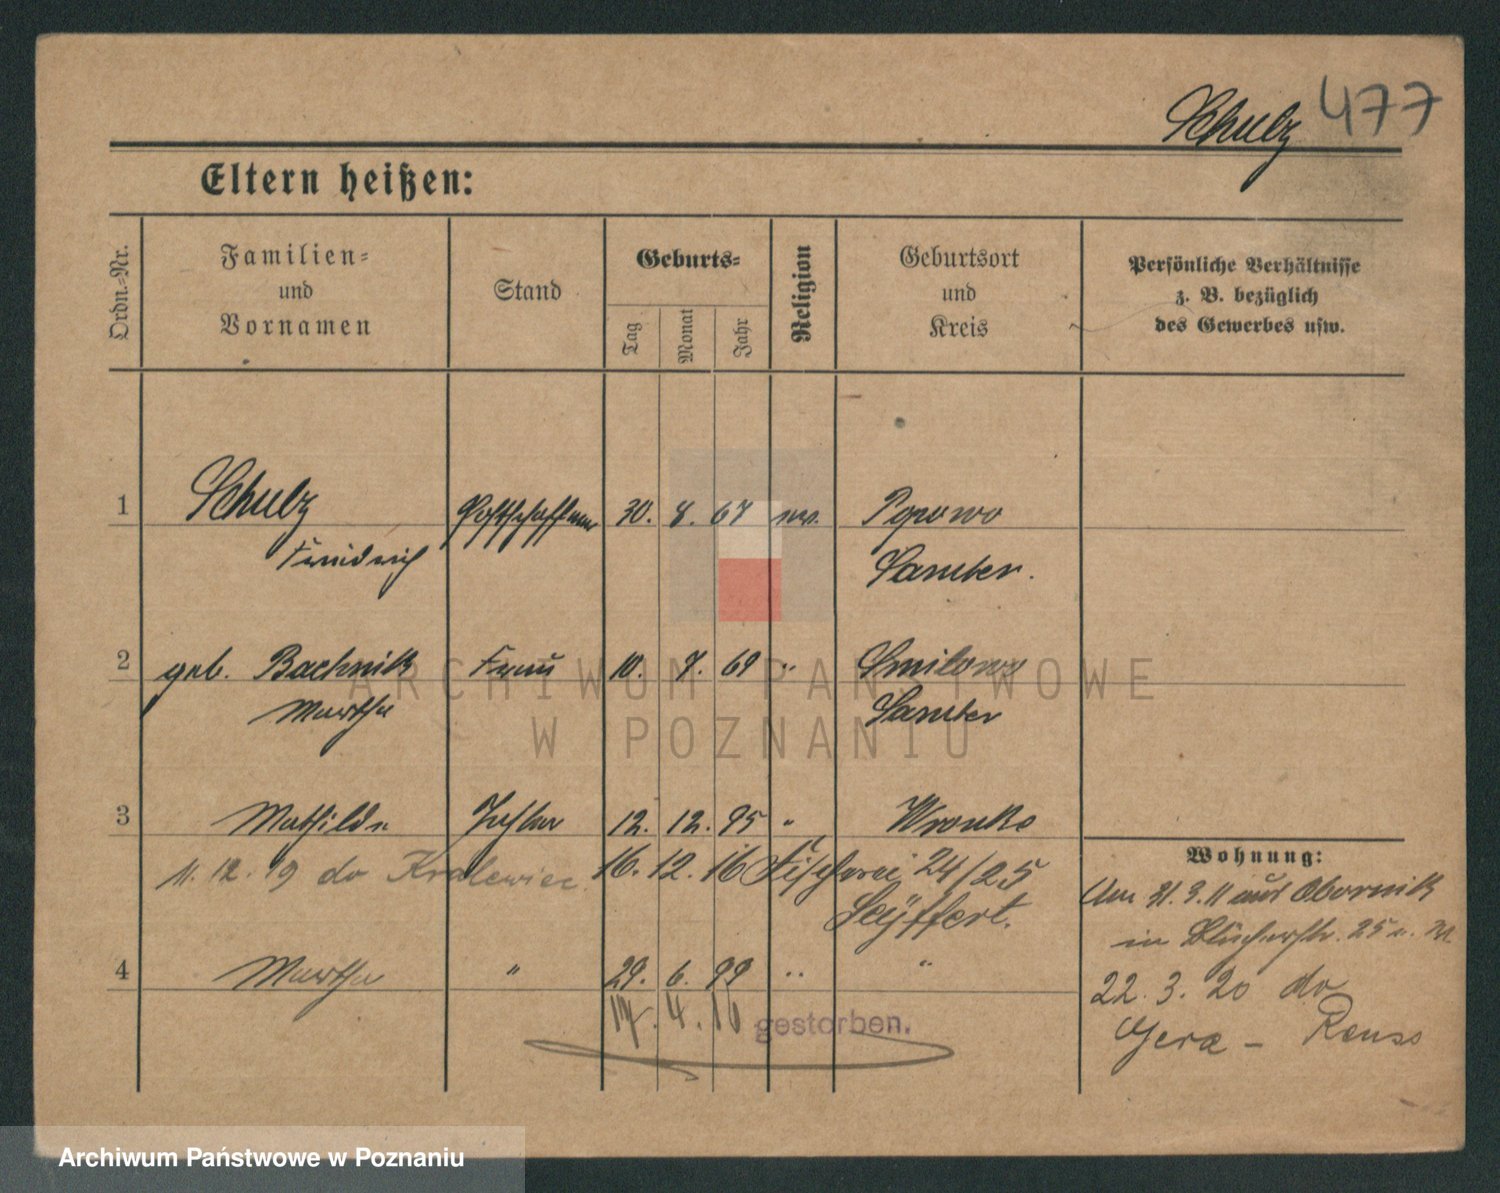 Schulz 477
Eltern heißen:
Ordn.-Nr.
Familien-
und
Vornamen
Stand
Geburts-
Tag
Monat
Jahr
Religion
Geburtsort
und
Kreis
Persönliche Verhältnisse
z. B. bezüglich
des Gewerbes usw.
1 Schulz Postschaffner 30. 8. 67 ev. Popowo
Friedrich Samter.
2 geb. Bachnik Frau 10. 7. 69 " Smilowo
Martha Samter
3 Mathilde Tochter 12. 12. 95 " Wronke
11. 12. 19 do Kralewiec. 16. 12. 16 Fischerei 24/25
Seyffert.
4 Martha " 29. 6. 99 " "
17. 4. 16 gestorben.
Wohnung:
Am 31. 3. 11 aus Obornik
in Blücherstr. 25
22. 3. 20 do
Gera - Reuss
ARCHIWUM PAŃSTWOWE
W POZNANIU
Archiwum Państwowe w Poznaniu